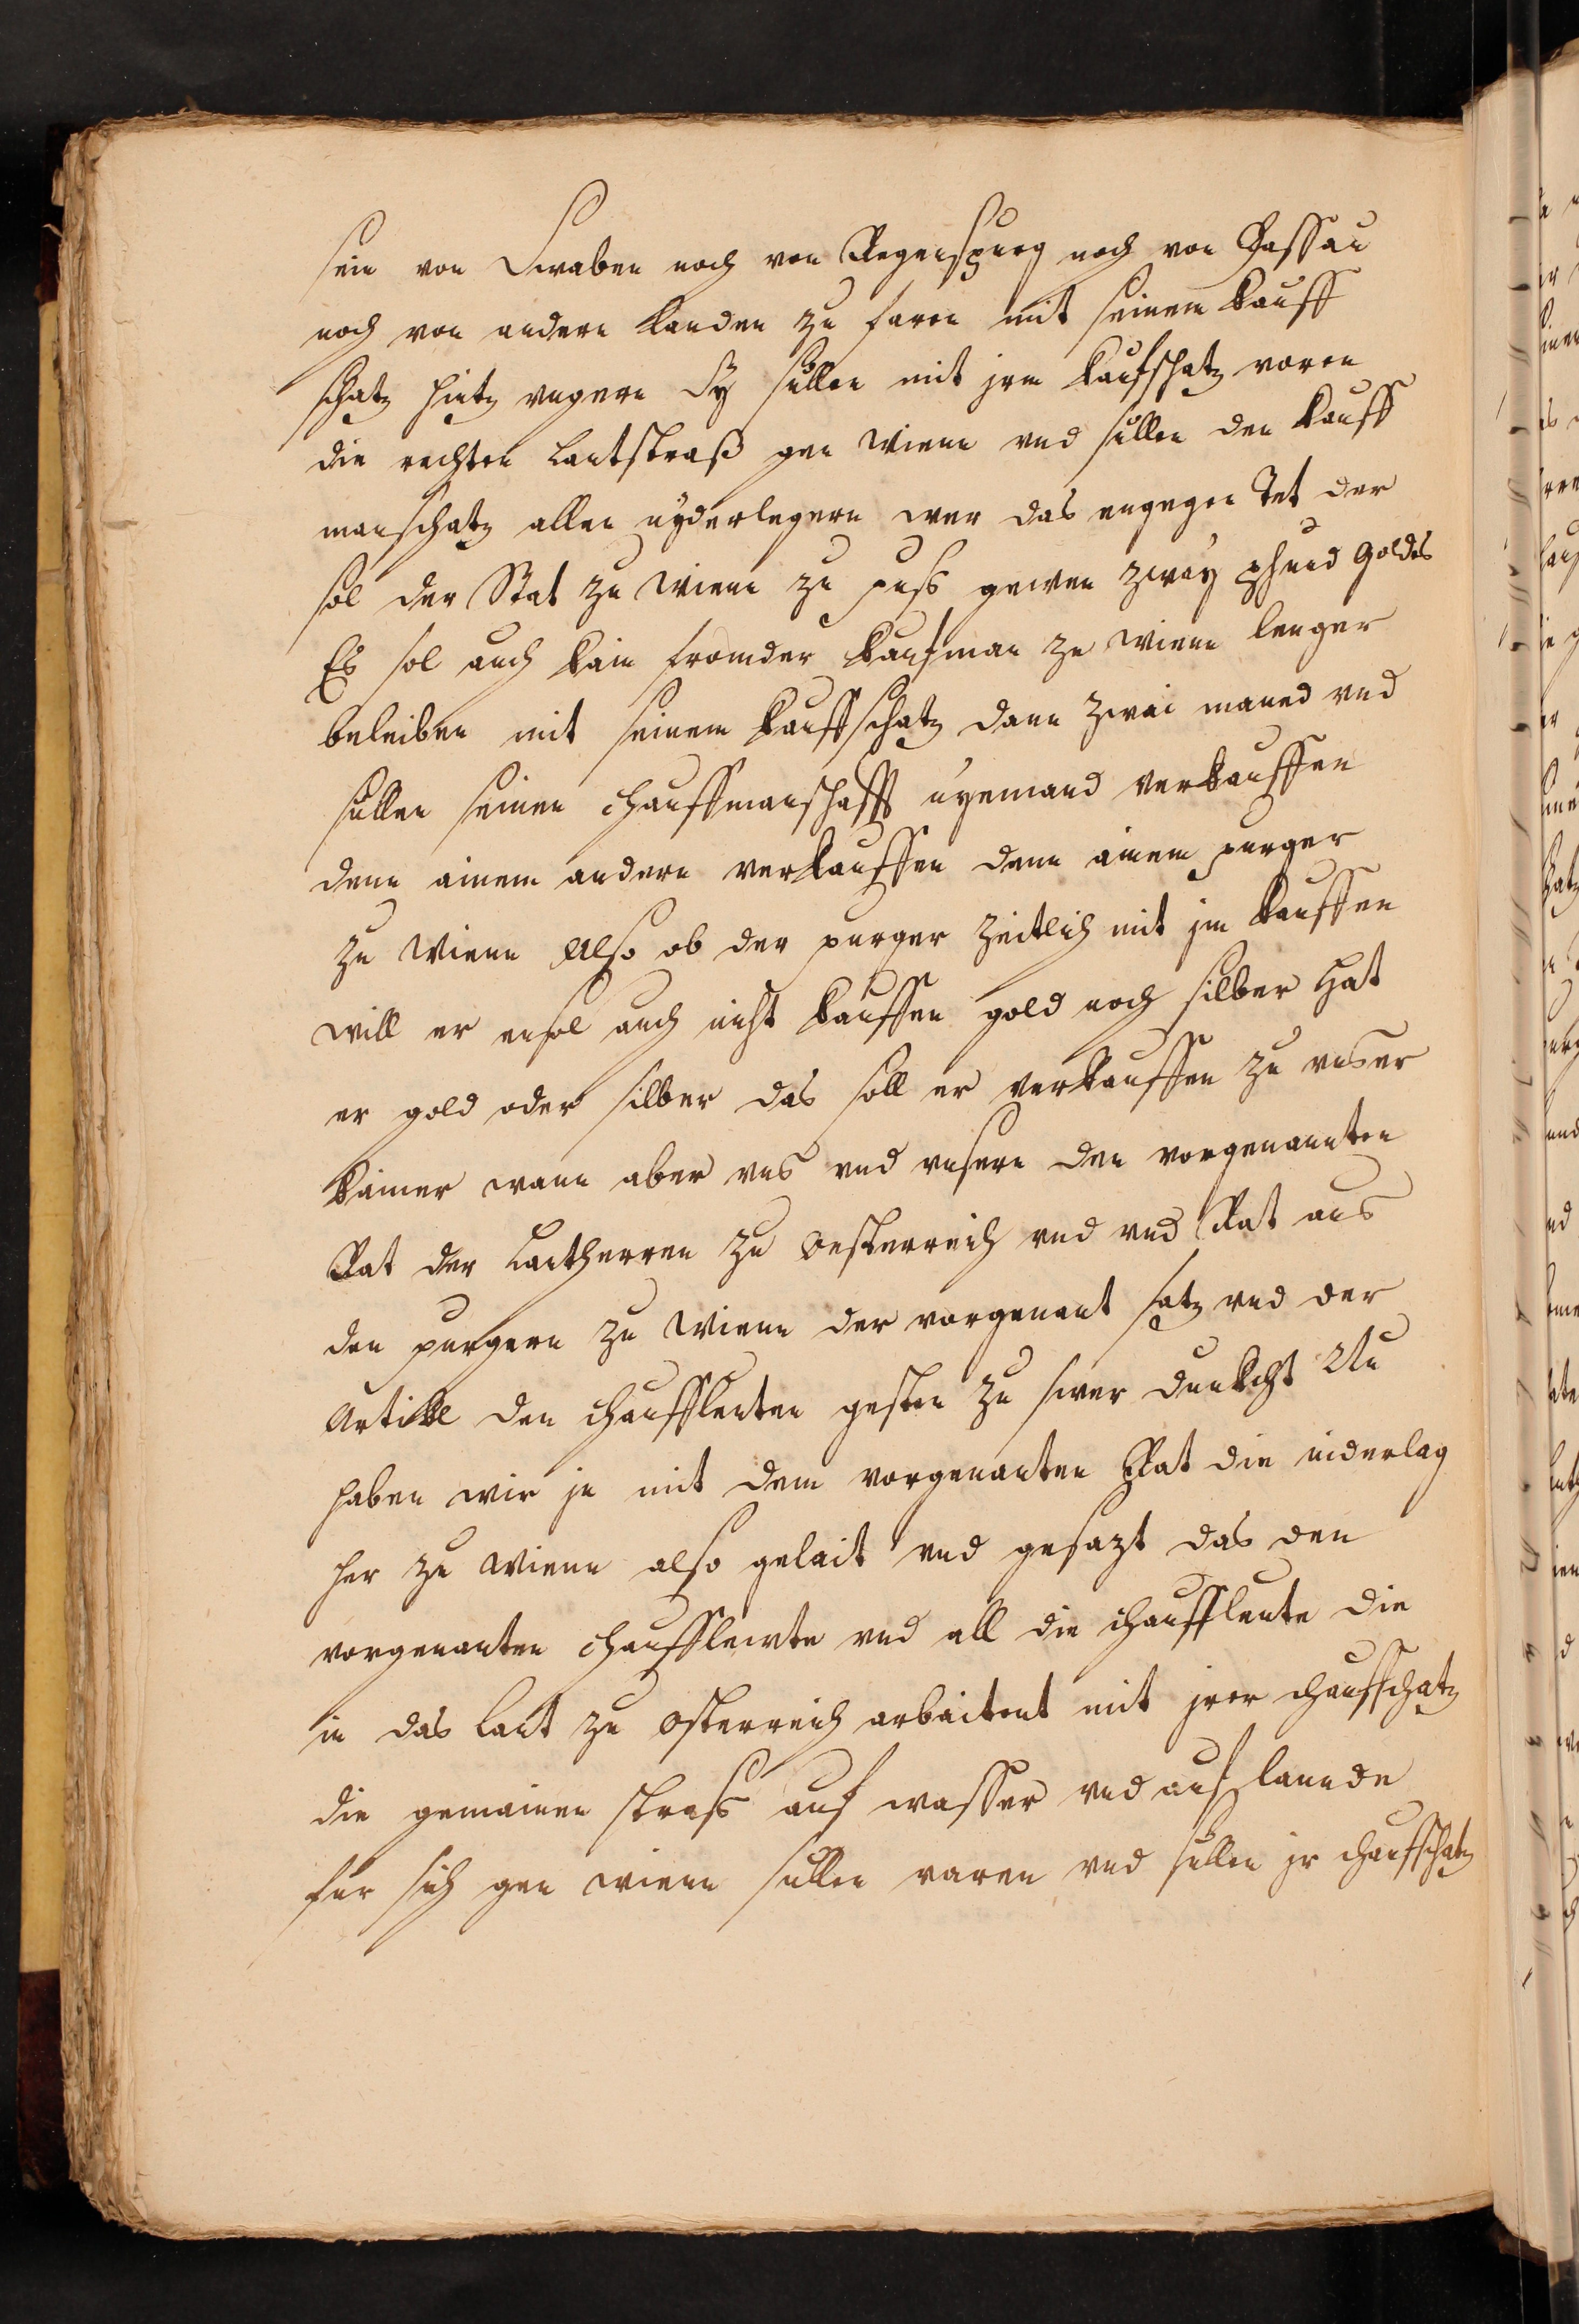 sein von Swaben noch von Regenspurg noch von Passau
noch von andern Landen zu faren mit seinem kauff
schatz hintz vngern Sy sullen mit jrm kaufschatz voren
die rechten Lantstraß gen Wienn vnd sullen den kauff
manschatz allen nyderlegern wer das engegen Tet der
sol der Stat zu Wienn zu puss gewen zway phund Goldes
Es sol auch kain fromder kaufman ze Wienn lenger
beleiben mit seinem kauffschatz dann zwai maned vnd
sullen seinen chauffmanschafft nyemand verkauffen
denn ainem andern verkauffen denn ainem purger
zu Wienn Also ob der purger zeitlich mit jm kauffen
will er ensol auch nicht kauffen gold noch silber Hat
er gold oder silber das soll er verkauffen zu vnser
kamer wann aber vns vnd vnsern den vorgenannten
Rat der Lantherren zu Oesterreich vnd vnd Rat aus
den purgern zu Wienn der vorgenant satz vnd der
Artikl den chauffleuten gesten zu swer dunkcht Nu
haben wir jn mit dem vorgenanten Rat die niderlag
her zu Wienn also gelait vnd gesazt das den
vorgenanten chaufflewte vnd all die chauffleute die
in das lant zu Osterreich arbaitent mit jrer chaufschatz
die gemainen strass auf wasser vnd auf lannde
fur sich gen wienn sullen varen vnd sullen jr chaufschatz